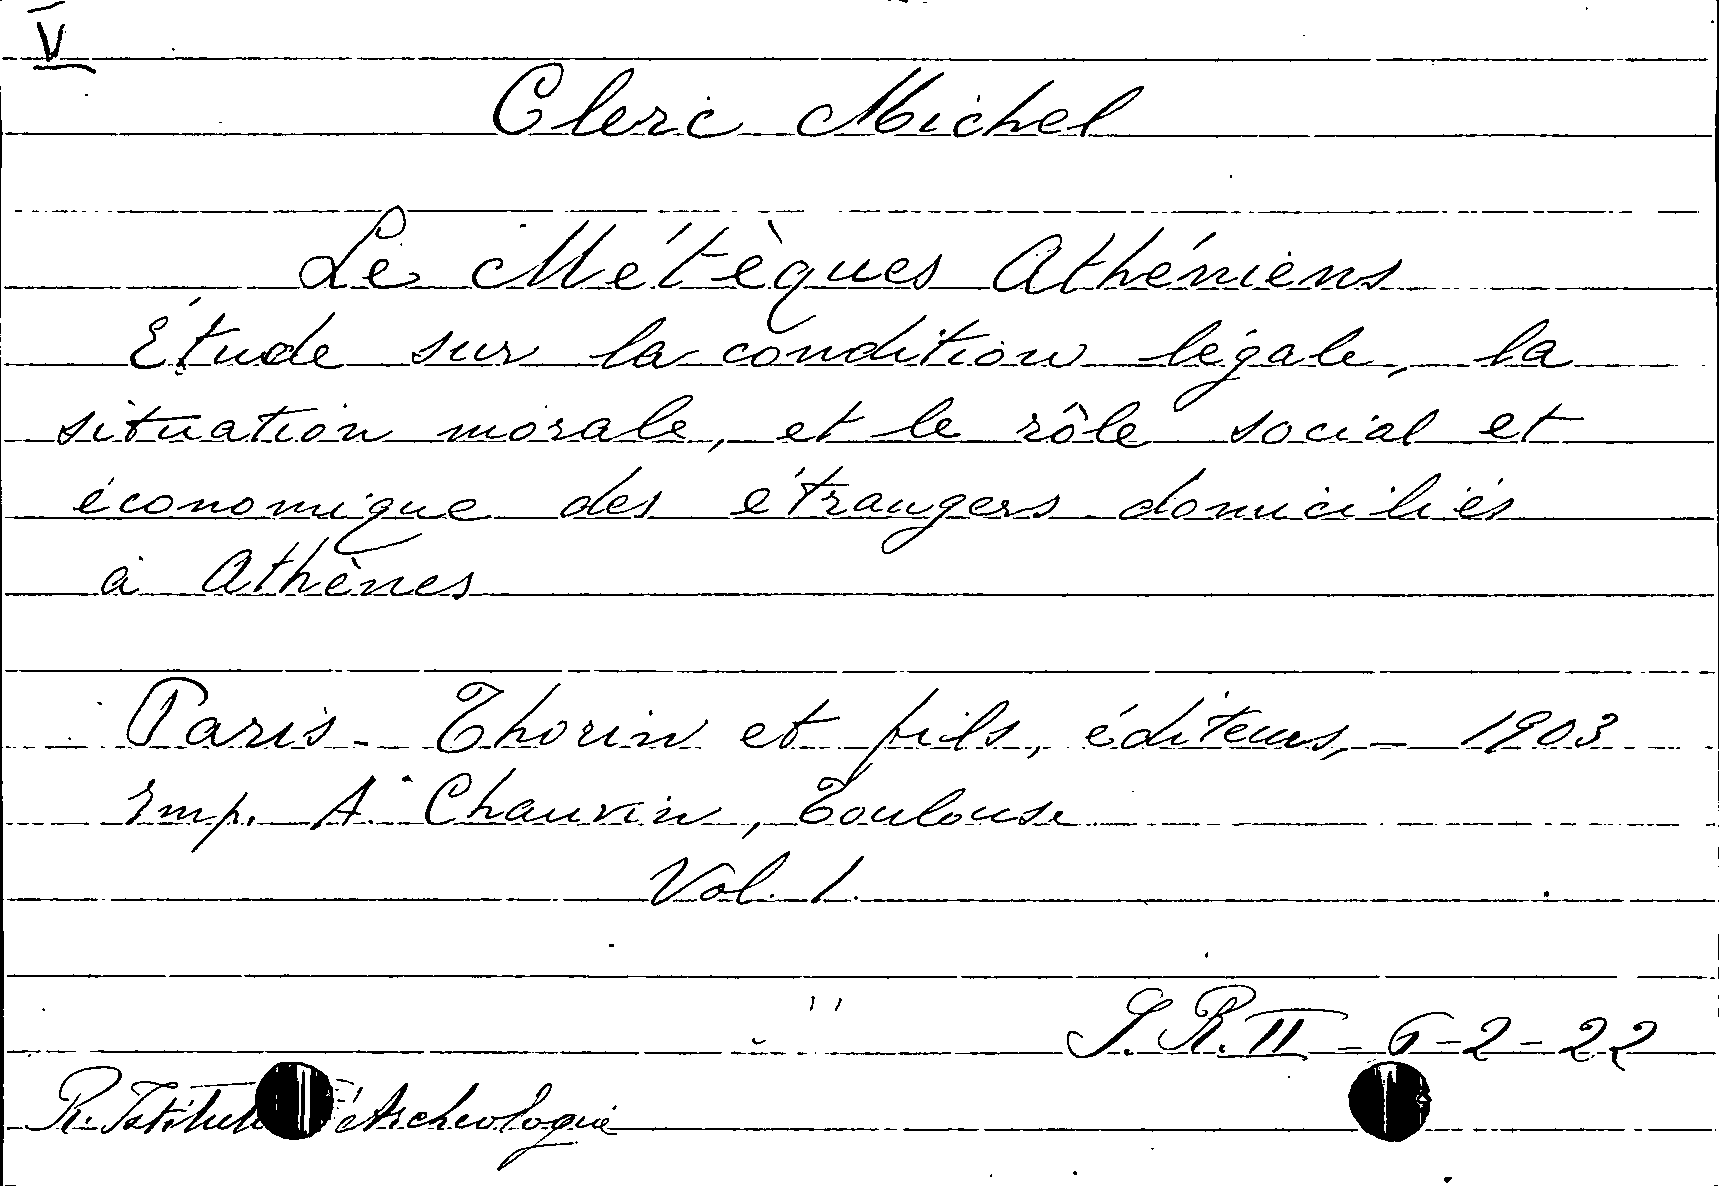 V
Clerc Michel
Le Métèques Athéniens
Étude sur la condition légale, la
situation morale, et le rôle social et
économique des étrangers domiciliés
à Athènes
Paris - Thorin et fils, éditeurs, - 1903
Imp. A. Chauvin, Toulouse
Vol. 1.
S. R. II - 6-2-22
R. Istituto Archeologia